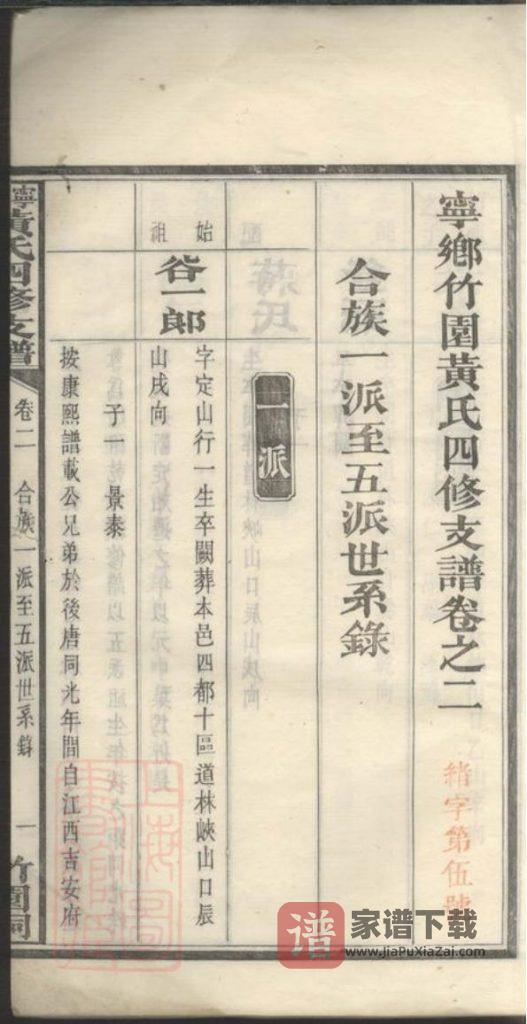 寧鄉竹園黃氏四修支譜卷之二
緒字第伍號
合族一派至五派世系錄
一派
始祖
谷一郎
字定山行一生卒闕葬本邑四都十區道林峽山口辰
山戌向
子一 景泰
按康熙譜載公兄弟於後唐同光年間自江西吉安府
寧黃氏四修支譜
卷二 合族一派至五派世系錄
一
竹園祠
家谱下载
www.JiaPuXiaZai.com
谱